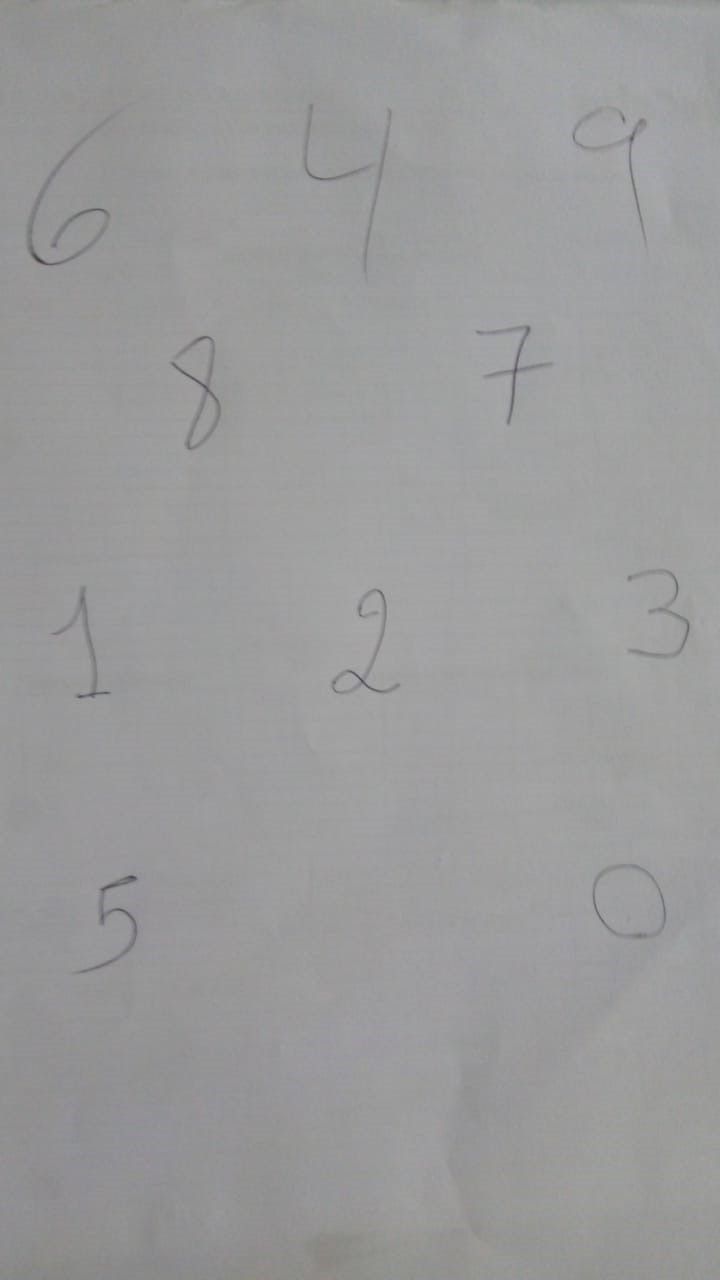 6 4 9
8 7
1 2 3
5 0